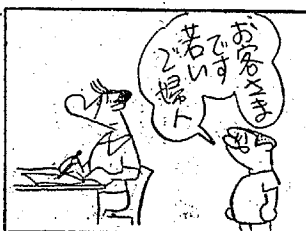 お客さま
です
若い
ご婦人